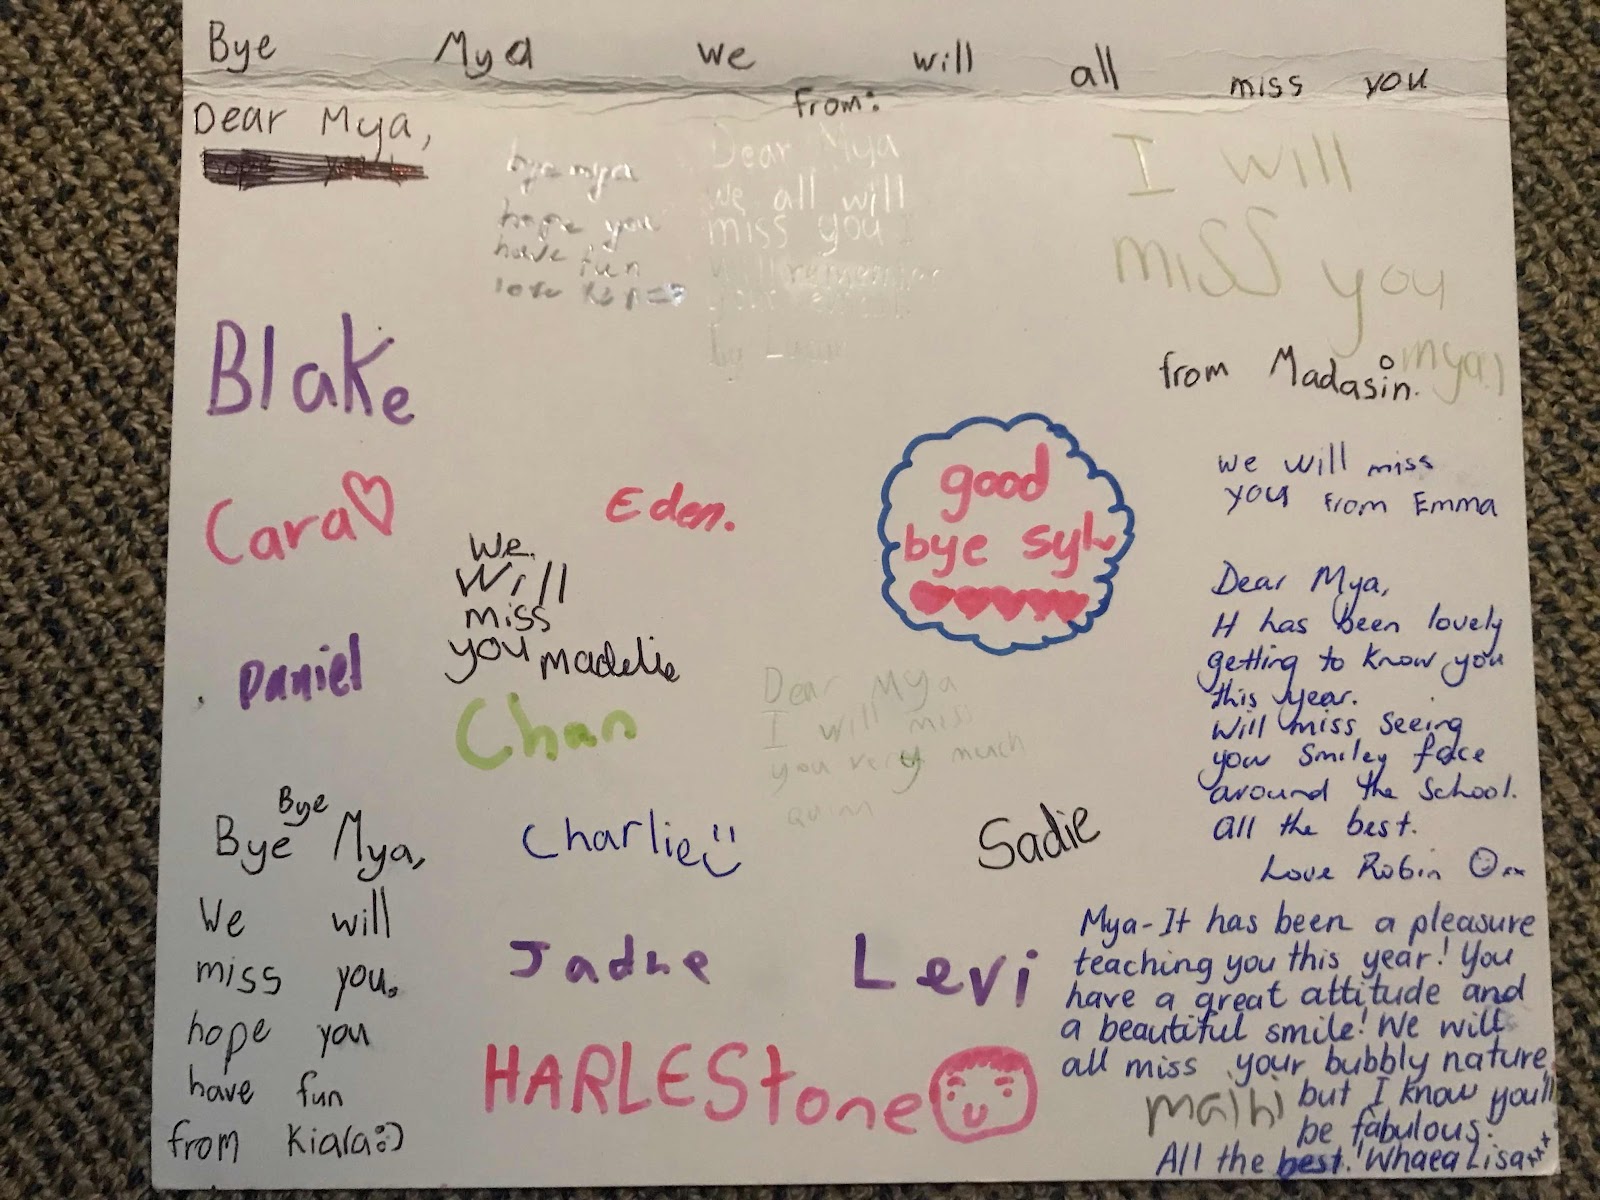 Bye Mya we will all miss you
from:
Dear Mya,
bye mya
hope you
have fun
love
Dear Mya
we all will
miss you I
will remember
by
I will
miss you
mya:)
from Madasin.
Blake
Cara♡
Eden.
good
bye syl
we will miss
you from Emma
We
Will
miss
you
Daniel
Chan
Dear Mya
I will miss
you very much
quinn
Dear Mya,
It has been lovely
getting to know you
this year.
Will miss seeing
your smiley face
around the school.
all the best.
Love Robin ☺xx
Bye Bye Mya,
We will
miss you.
hope you
have fun
from Kiala:)
Charlie
Sadie
Levi
HARLEStone
Mya-It has been a pleasure
teaching you this year! You
have a great attitude and
a beautiful smile! We will
all miss your bubbly nature,
but I know you'll
be fabulous.
All the best! Whaea Lisa xxx
maihi